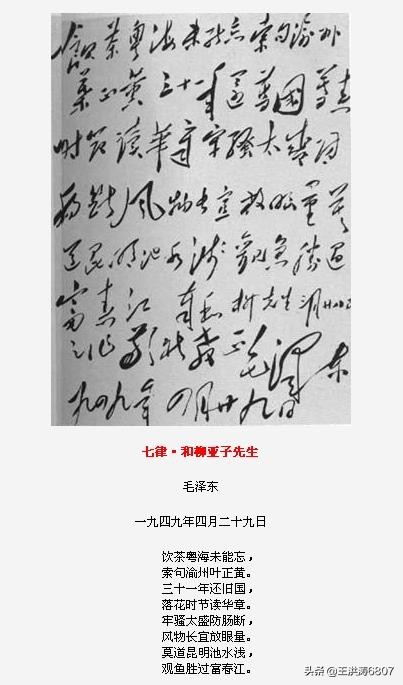 飲茶粤海未能忘索句渝州
葉正黄三十一年還舊國落花
时节读华章牢骚太盛防
肠断风物长宜放眼量莫
道昆明池水浅觀魚勝过
富春江 奉和柳先生
之作敬祈教正毛泽东
一九四九年四月廿九日
七律·和柳亚子先生
毛泽东
一九四九年四月二十九日
饮茶粤海未能忘，
索句渝州叶正黄。
三十一年还旧国，
落花时节读华章。
牢骚太盛防肠断，
风物长宜放眼量。
莫道昆明池水浅，
观鱼胜过富春江。
头条 @王洪涛6807